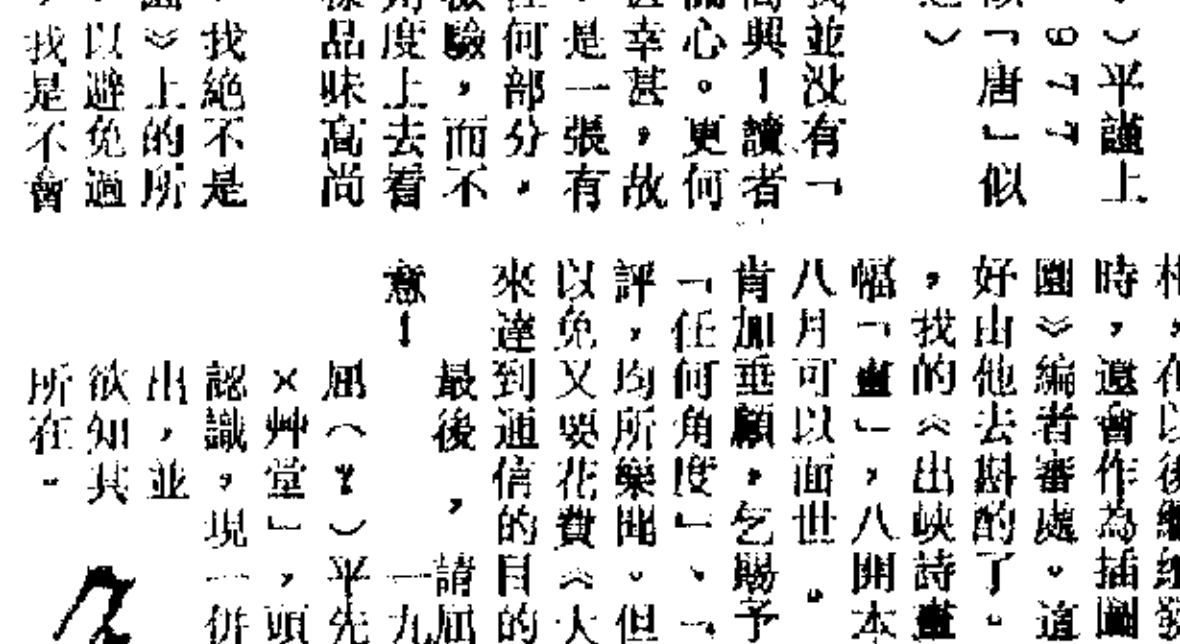 )平謹上
977
「唐」似
)
並没有「
高興!讀者
心。更何
幸甚,故
是一張有
何部分,
驗,而不
角度上去看
樣品味高尚
我絕不是
》上的所
以避免過
我是不會
時,還會作為插圖
園》編者審處。這
好由他去斟酌了。
,我的《出峽詩畫
幅「畫」,八開本
八月可以面世。
肯加垂顧,乞賜予
「任何角度」、「
評,均所樂聞。但
以免又要花費《大
來達到通信的目的
最後,請屈
意! 一九
屈()平先
×艸堂」,頭
認識,現一併
出,並
欲知其
所在。